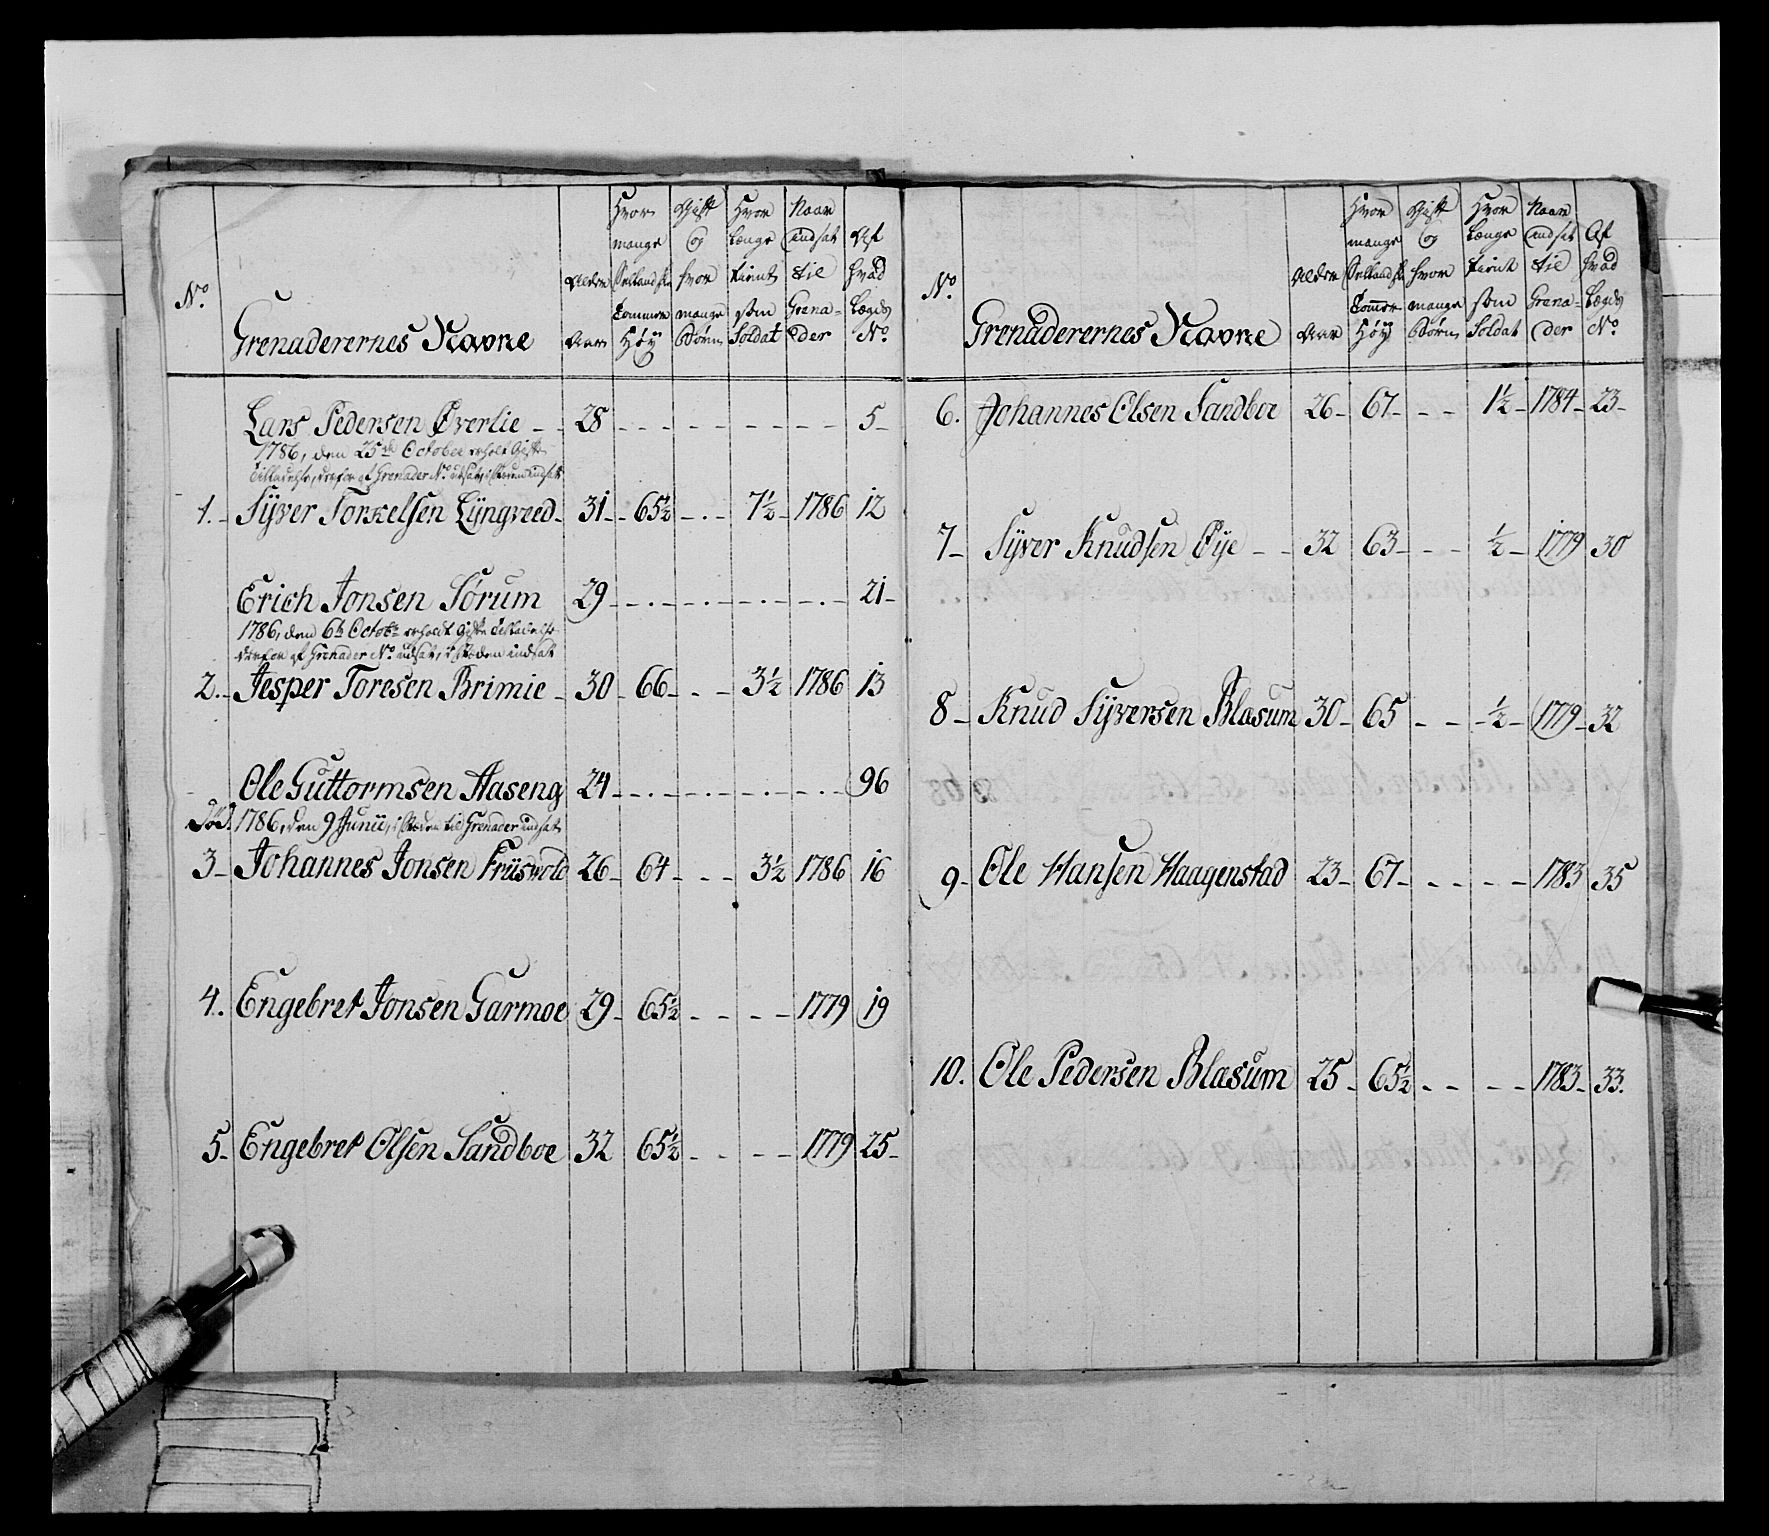 No. Grenaderernes Navne Alder Aar Hvor mange Sellands Tommer Høy Gift og hvor mange Børn Hvor længe tient som Soldat Naar indsat til Grenader Af hvad Lægds No.
Lars Pedersen Øverlie - - 28 - - - - - - - - 5 -
1786, den 25de October erholt Gifte
Tilladelse, derfor af Grenader No. udsat, i steden indsat
1. - Syver Torkelsen Lyngveed - 31 - - 65½ - . - 7½ - 1786 12
Erich Jonsen Sørum 29 - - . - . - - . - . - - . - 21 -
1786, den 6te Octobr. erholdt Gifte Tilladelse
derfor af Grenader No. udsat, i steden indsatt
2. - Jesper Toresen Brimie - 30 - 66 - . - 3½ 1786 13
Ole Guttormsen Haseng 24 - - . - . - - . - . - . . 96
Død. 1786, den 9 Junii, i steden til Grenader indsat
3 - Johannes Jonsen Friisvold 26 - 64 - - - 3½ 1786 16
4. Engebret Jonsen Garmoe 29 - 65½ - - - - 1779 19
5 - Engebret Olsen Sandboe 32 65½ - - - - 1779 25 -
No. Grenaderernes Navne Alder Aar Hvor mange Sellands Tommer Høy Gift og hvor mange Børn Hvor længe tient som Soldat Naar indsat til Grenader Af hvad Lægds No.
6. Johannes Olsen Sandboe 26 - 67 - - - 1½ - 1784 - 23 -
7 - Syver Knudsen Øye - - 32 63 - - - ½ - 1779 30
8 - Knud Syversen Blasum 30 - 65 - - - ½ - 1779 - 32
9 - Ole Hansen Haagenstad 23 - 67 - - - - - 1783 35
10. Ole Pedersen Blasum 25 - 65½ - - - - 1783 - 33.